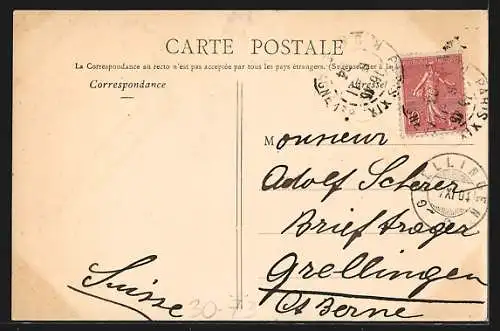 CARTE POSTALE
La Correspondance au recto n'est pas acceptée par tous les pays étrangers. (Se renseigner à la
Correspondance
Adresse
PARIS XIX
Monsieur
Adolf Scherer
Briefträger
Grellingen
Ct Berne
Suisse
GRELLINGEN
30-73